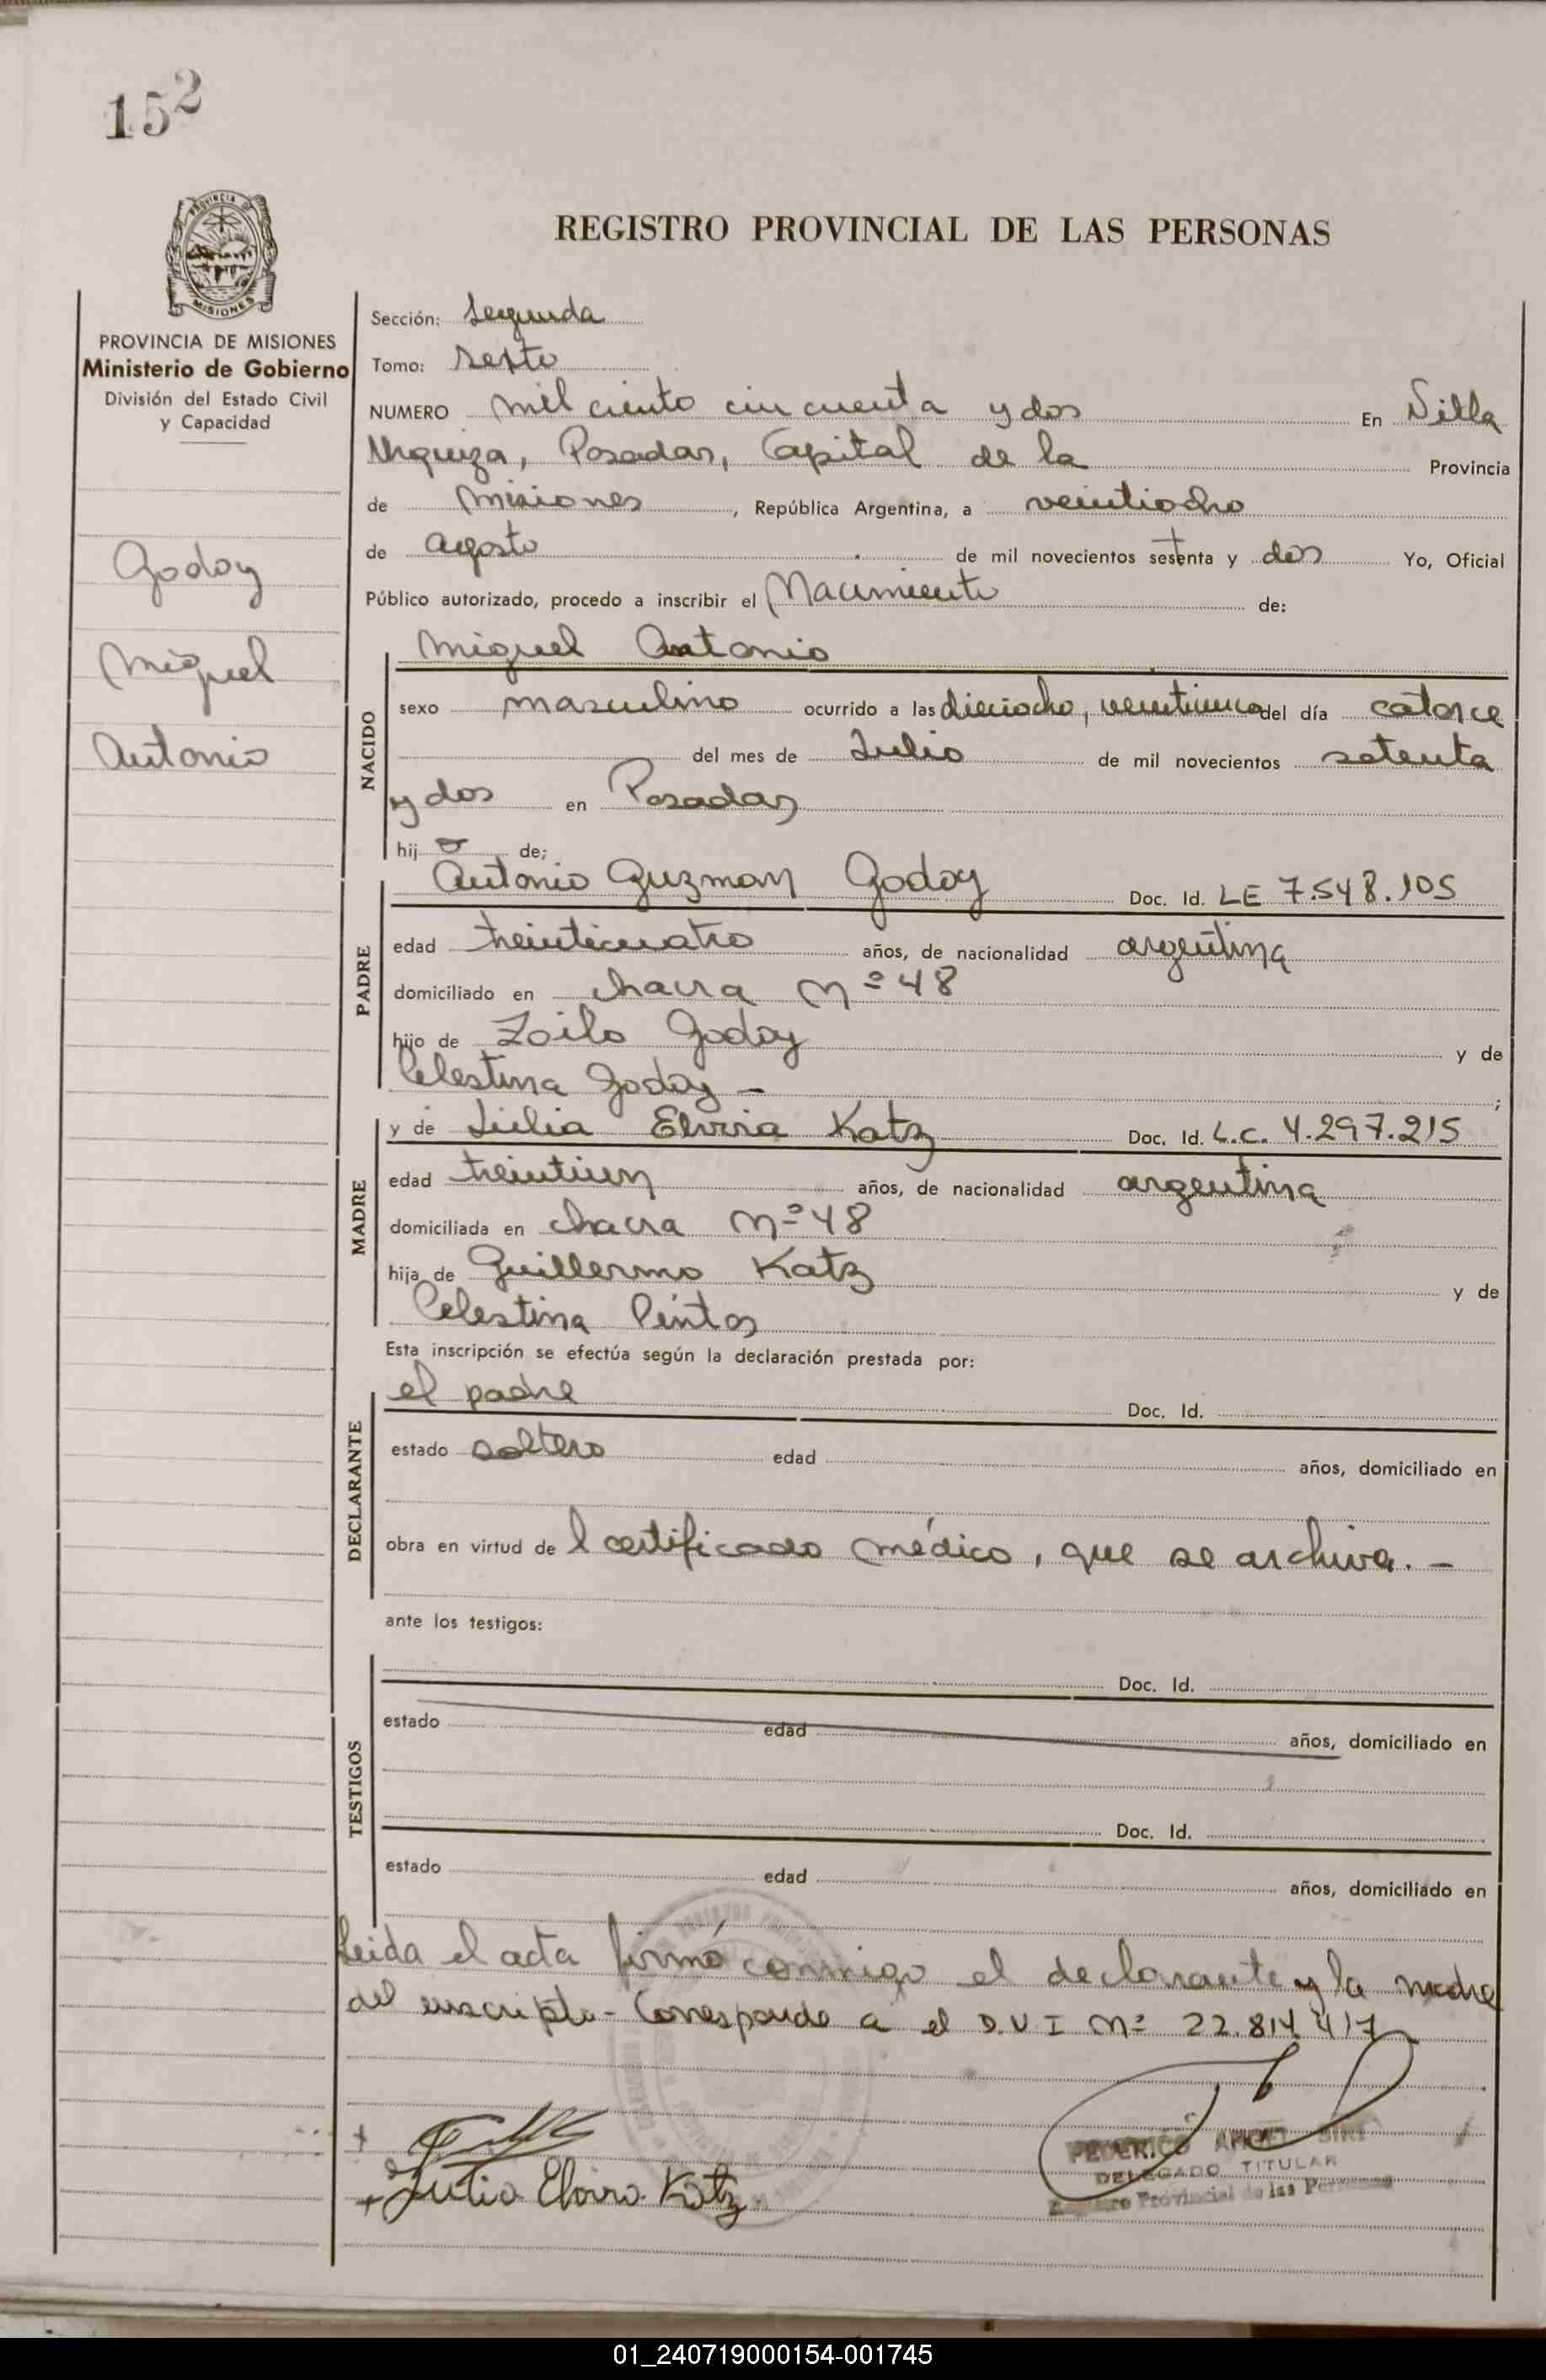 152
PROVINCIA DE
MISIONES
REGISTRO PROVINCIAL DE LAS PERSONAS
PROVINCIA DE MISIONES
Ministerio de Gobierno
División del Estado Civil
y Capacidad
Godoy
Miguel
Antonio
Sección: Segunda
Tomo: Sexto
NUMERO mil ciento cincuenta y dos En Villa
Urquiza, Posadas, Capital de la Provincia
de Misiones, República Argentina, a veintiocho
de agosto de mil novecientos setenta y dos Yo, Oficial
Público autorizado, procedo a inscribir el Nacimiento de:
Miguel Antonio
NACIDO
sexo masculino ocurrido a las dieciocho, veinticinco del día catorce
del mes de Julio de mil novecientos setenta
y dos en Posadas
hijo de;
PADRE
Antonio Guzman Godoy Doc. Id. LE 7.548.105
edad treinticuatro años, de nacionalidad argentina
domiciliado en chacra Nº 48
hijo de Zoilo Godoy y de
Celestina Godoy - ;
MADRE
y de Julia Elvira Katz Doc. Id. L.C. 4.297.215
edad treintiun años, de nacionalidad argentina
domiciliada en chacra Nº 48
hija de Guillermo Katz y de
Celestina Pintos
Esta inscripción se efectúa según la declaración prestada por:
DECLARANTE
el padre Doc. Id.
estado soltero edad años, domiciliado en
obra en virtud del certificado médico, que se archiva. -
ante los testigos:
TESTIGOS
Doc. Id.
estado edad años, domiciliado en
Doc. Id.
estado edad años, domiciliado en
Leida el acta firmó conmigo el declarante y la madre
del inscripto - Corresponde a el D.U.I Nº 22.814.417
+
+ Julia Elvira Katz
FEDERICO ANGEL
DELEGADO TITULAR
Registro Provincial de las Personas
01_240719000154-001745